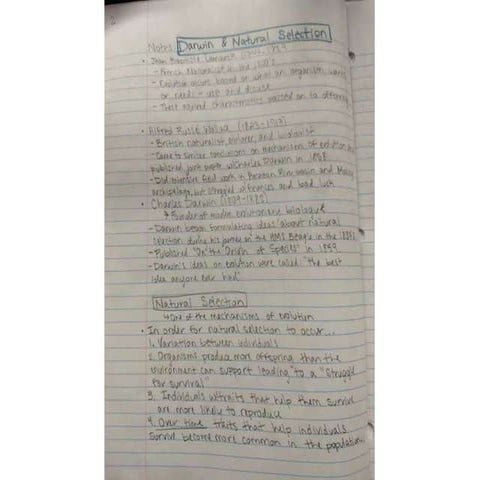 Notes: Darwin & Natural Selection
• Jean Baptiste Lamarck 1744-1829
- French Naturalist in the 1800's
- Evolution occurs based on what an organism wants
or needs - use and disuse
- These acquired characteristics passed on to offspring
• Alfred Russel Wallace (1823-1913)
- British naturalist, explorer, and biologist
- Came to similar conclusions on mechanisms of evolution and
published joint paper with Charles Darwin in 1858
- Did extensive field work in Amazon River basin and Malay
archipelago, but struggled w/ finances and bad luck
Charles Darwin (1809-1882)
Founder of modern evolutionary biologue
- Darwin began formulating ideas about natural
selection during his journey on the HMS Beagle in the 1830's
- Published "On the Origin of Species" in 1859
- Darwin's ideas on evolution were called "the best
idea anyone ever had"
Natural Selection
↳ One of the mechanisms of evolution
• In order for natural selection to occur...
1. Variation between individuals
2. Organisms produce more offspring than the
environment can support leading to a "struggle
for survival"
3. Individuals w/ traits that help them survive
are more likely to reproduce
4. Over time traits that help individuals
survive become more common in the population.